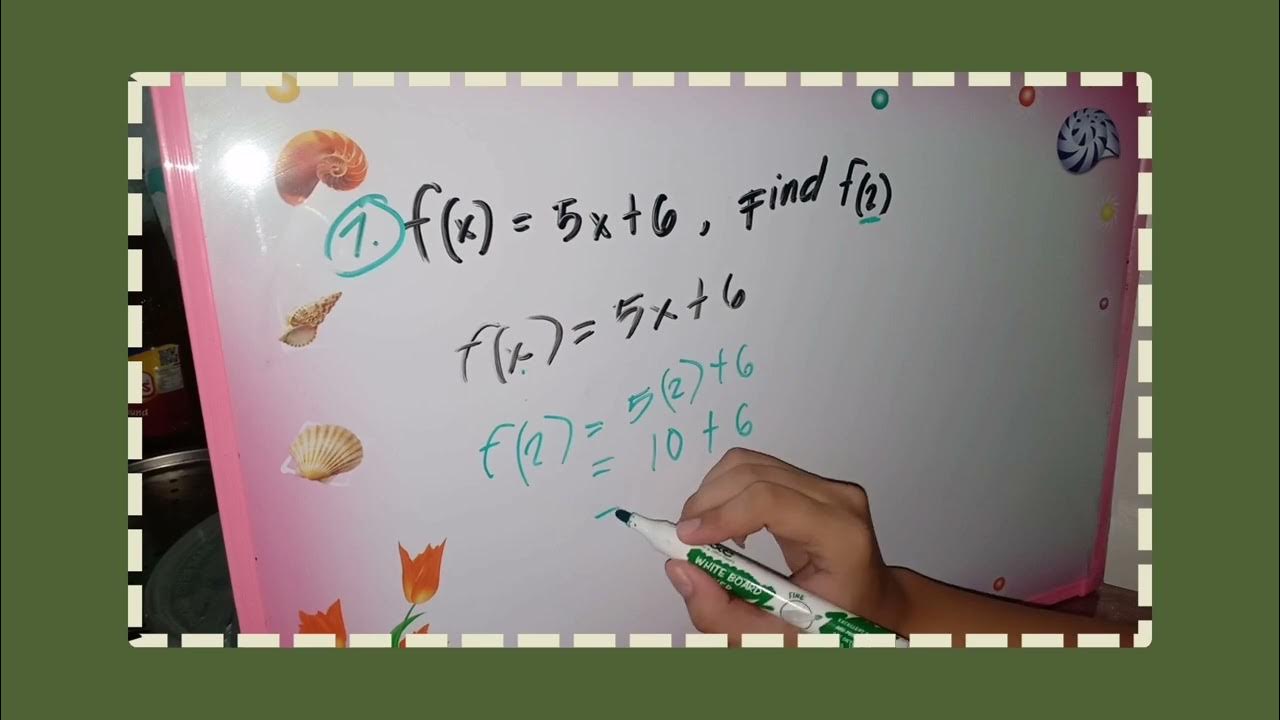 1. f(x) = 5x+6, Find f(2)
f(x) = 5x+6
f(2) = 5(2)+6
= 10 + 6
WHITE BOARD
FINE